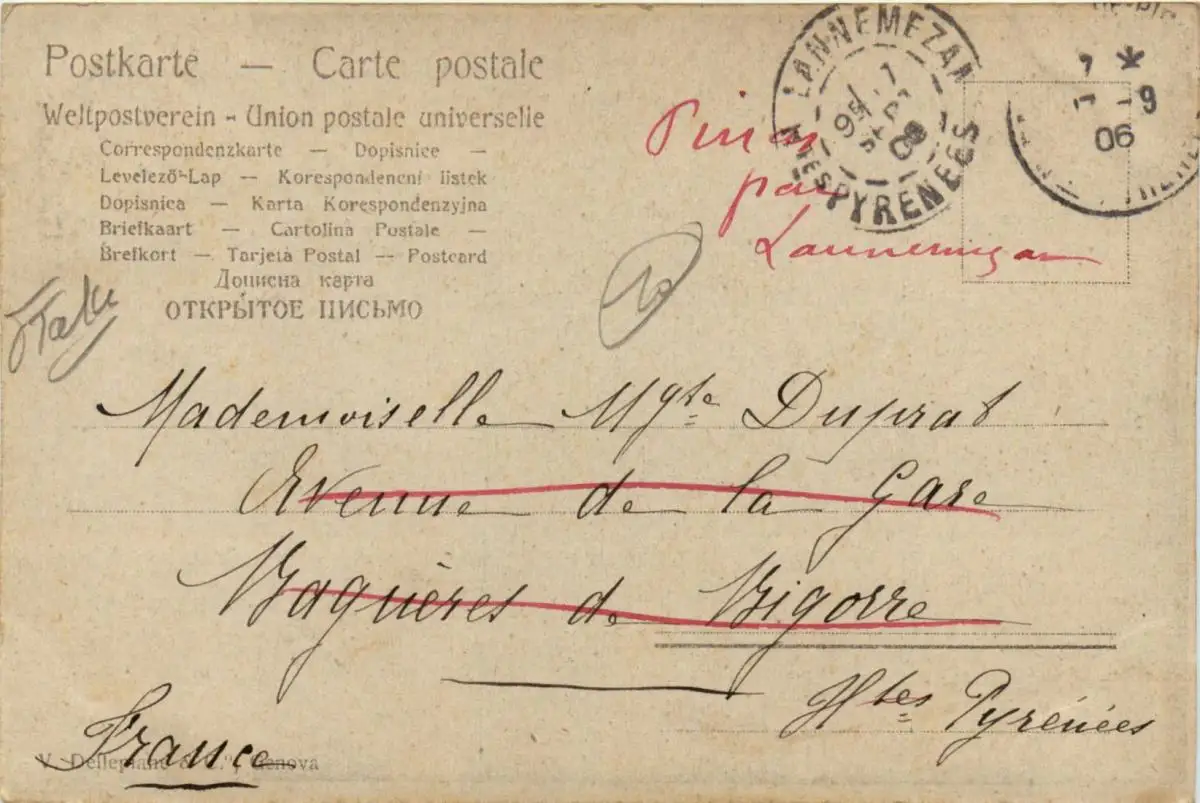 Postkarte — Carte postale
Weltpostverein - Union postale universelle
Correspondenzkarte — Dopisnice —
Levelező-Lap — Korespondencni listek
Dopisnica — Karta Korespondenzyjna
Briefkaart — Cartolina Postale —
Brefkort — Tarjeta Postal — Postcard
Дописна карта
ОТКРЫТОЕ ПИСЬМО
LANNEMEZAN
HTES PYRENEES
9
06
par
Lannemezan
Mademoiselle Mgte Duprat
Avenue de la Gare
Bagnères de Bigorre
Htes Pyrénées
France
Genova